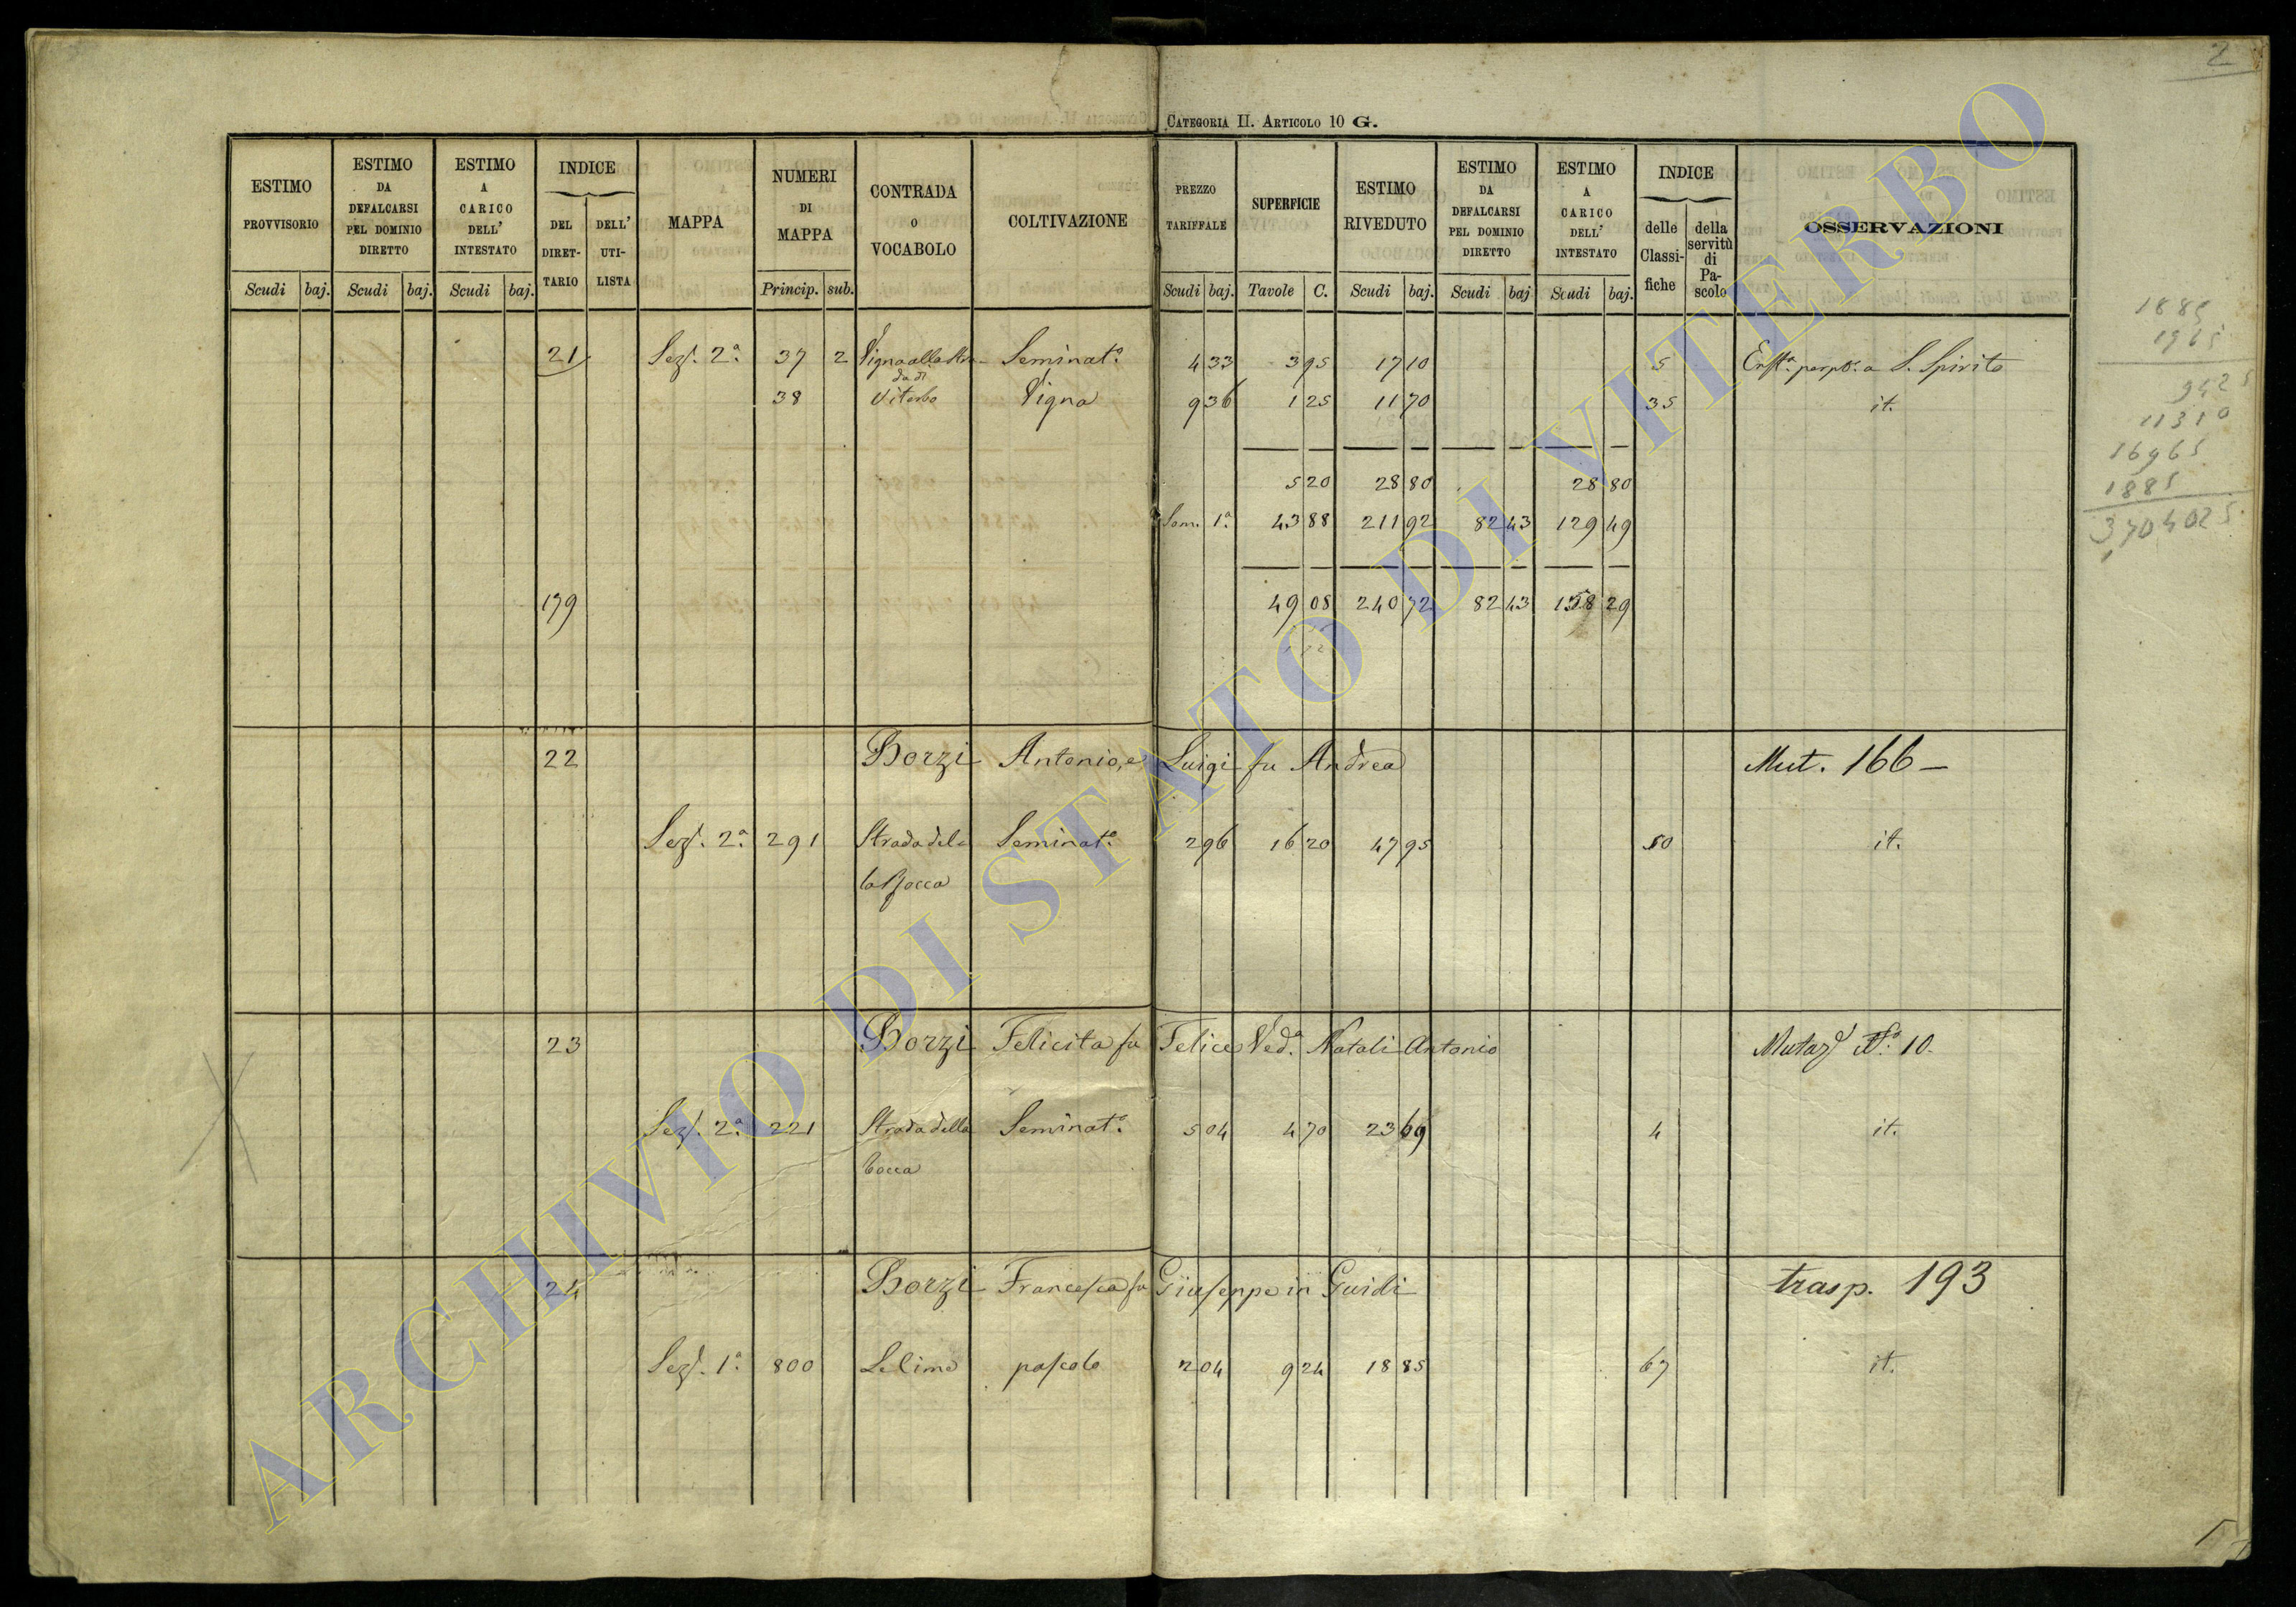 2
CATEGORIA II. ARTICOLO 10 G.
ESTIMO PROVVISORIO Scudi baj.
ESTIMO DA DEFALCARSI PEL DOMINIO DIRETTO Scudi baj.
ESTIMO A CARICO DELL' INTESTATO Scudi baj.
INDICE DEL DIRET-TARIO DELL' UTI-LISTA
MAPPA
NUMERI DI MAPPA Princip. sub.
CONTRADA O VOCABOLO
COLTIVAZIONE
PREZZO TARIFFALE Scudi baj.
SUPERFICIE Tavole C.
ESTIMO RIVEDUTO Scudi baj.
ESTIMO DA DEFALCARSI PEL DOMINIO DIRETTO Scudi baj
ESTIMO A CARICO DELL' INTESTATO Scudi baj.
INDICE delle Classi-fiche della servitù di Pa-scolo
OSSERVAZIONI
21 Sez. 2ª 37 2 Vigna alla Stra- Seminatº 4 33 3 95 17 10 5 Enfª perpª a S. Spirito
da di
38 Viterbo Vigna 9 36 1 25 11 70 35 it.
5 20 28 80 28 80
Som. 1ª 43 88 211 92 82 43 129 49
179 49 08 240 72 82 43 158 29
22 Borzi Antonio, e Luigi fu Andrea Mut. 166 –
Sez. 2ª 291 Strada del- Seminatº 2 96 16 20 47 95 50 it.
la Rocca
23 Borzi Felicita fu Felice Vedª Natali Antonio Mutaz Nº 10.
Sez. 2ª 221 Strada della Seminatº 5 04 4 70 23 69 4 it.
Rocca
24 Borzi Francesca fu Giuseppe in Guidi trasp. 193
Sez. 1ª 800 Le lime pascolo 2 04 9 24 18 85 67 it.
1885
1965
9425
11310
16965
1885
3,704025
ARCHIVIO DI STATO DI VITERBO